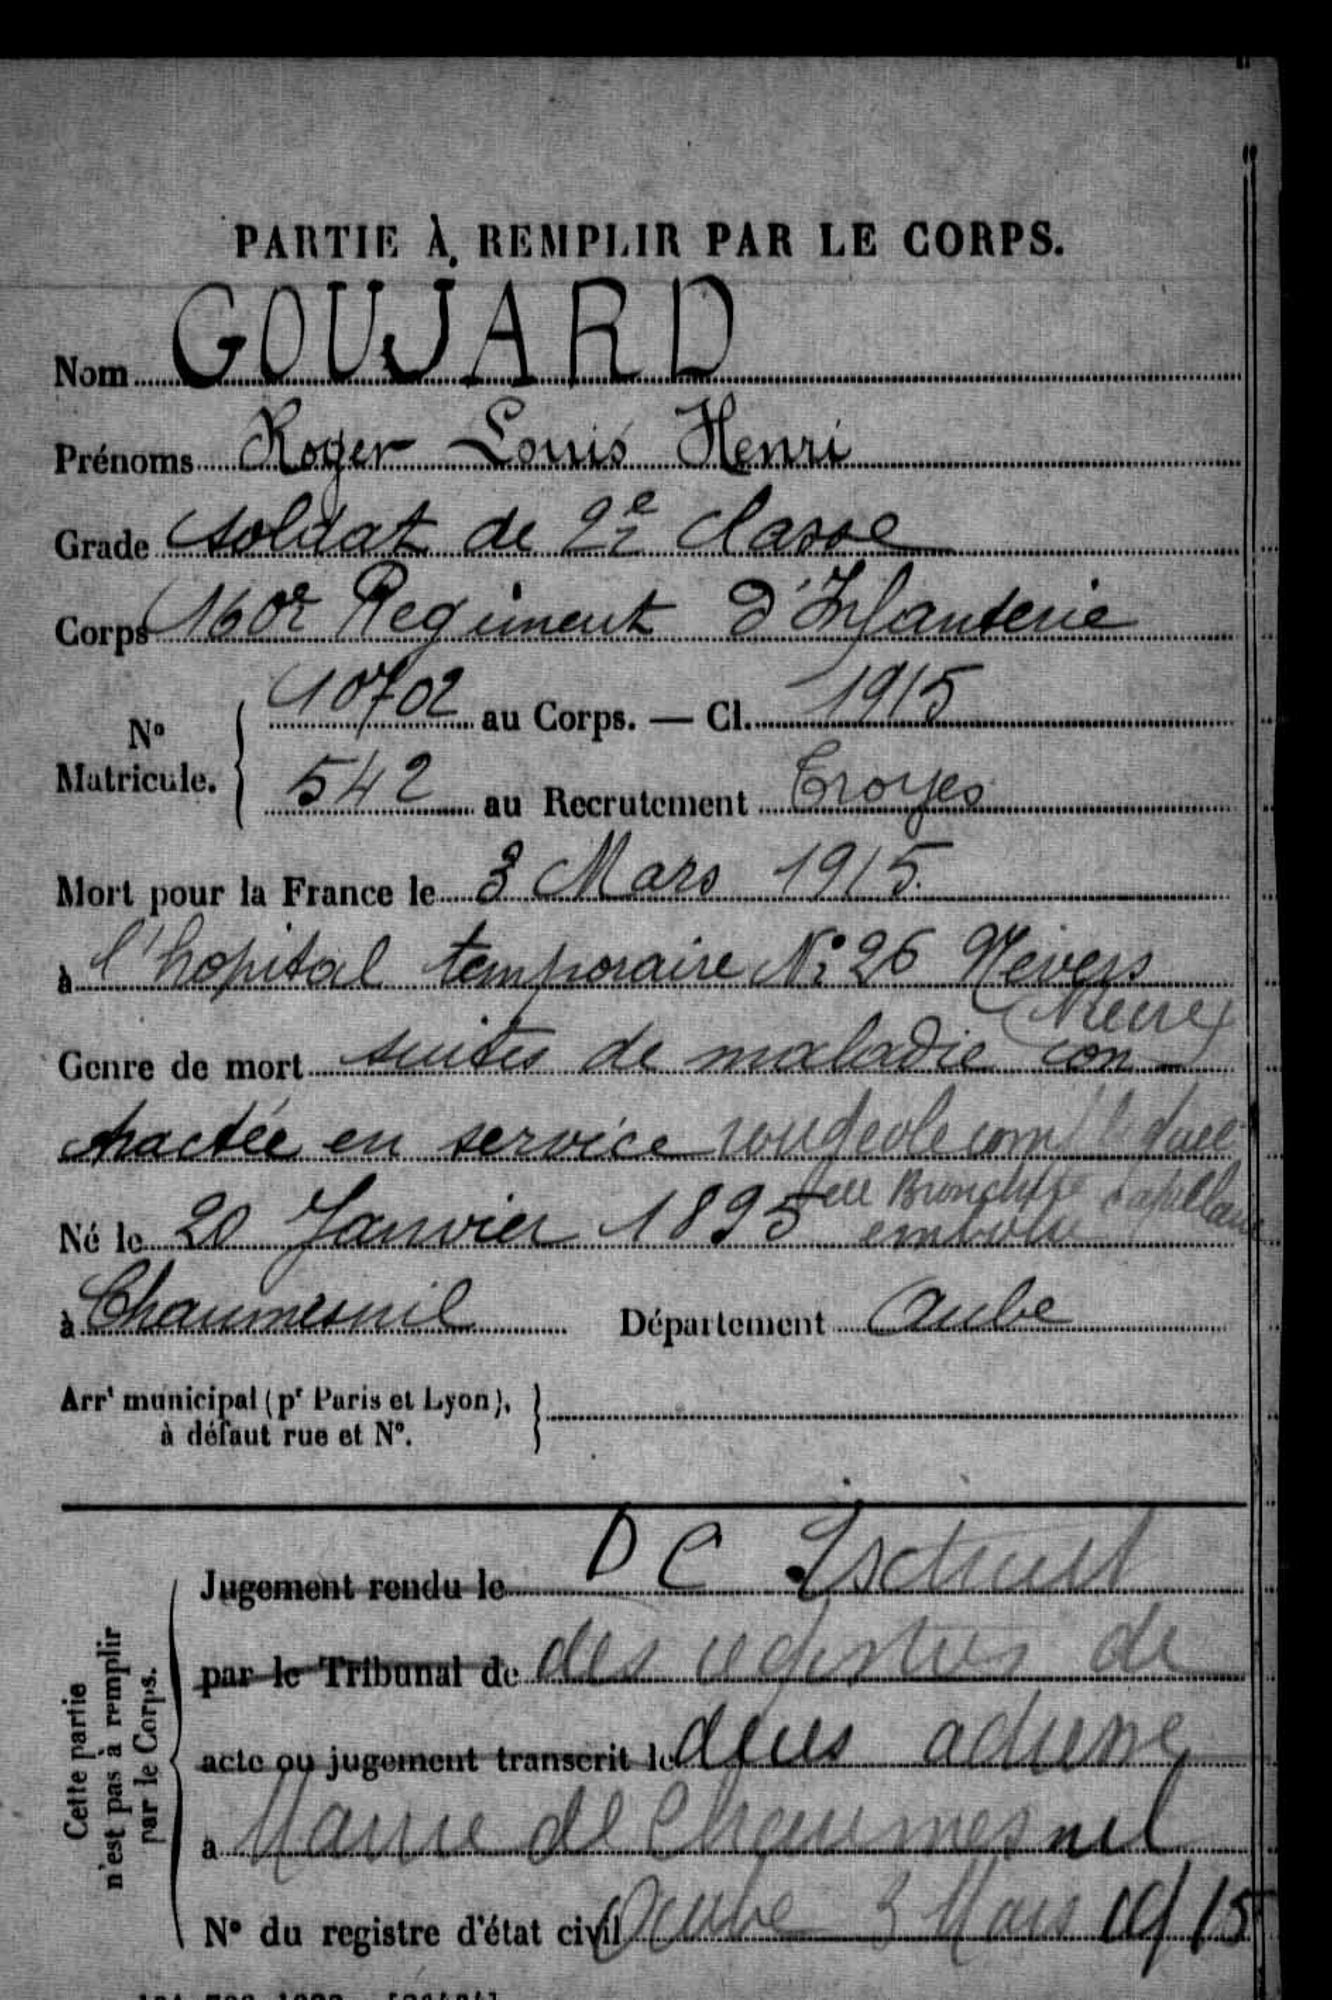 PARTIE À REMPLIR PAR LE CORPS.
Nom GOUJARD
Prénoms Roger Louis Henri
Grade soldat de 2e classe
Corps 160e Regiment d'Infanterie
N° Matricule. { 10702 au Corps. — Cl. 1915
542 au Recrutement Troyes
Mort pour la France le 3 Mars 1915.
à l'hopital temporaire N° 26 Nevers
(Nievre)
Genre de mort suites de maladie con-
tractée en service rougeole
Né le 20 Janvier 1895
à Chaumesnil Département Aube
Arrt municipal (pr Paris et Lyon), à défaut rue et N°. }
Cette partie n'est pas à remplir par le Corps.
Jugement rendu le DC Extrait
par le Tribunal de des registres de
acte ou jugement transcrit le décès adressé
a Mairie de Chaumesnil
N° du registre d'état civil Aube 3 Mars 1915